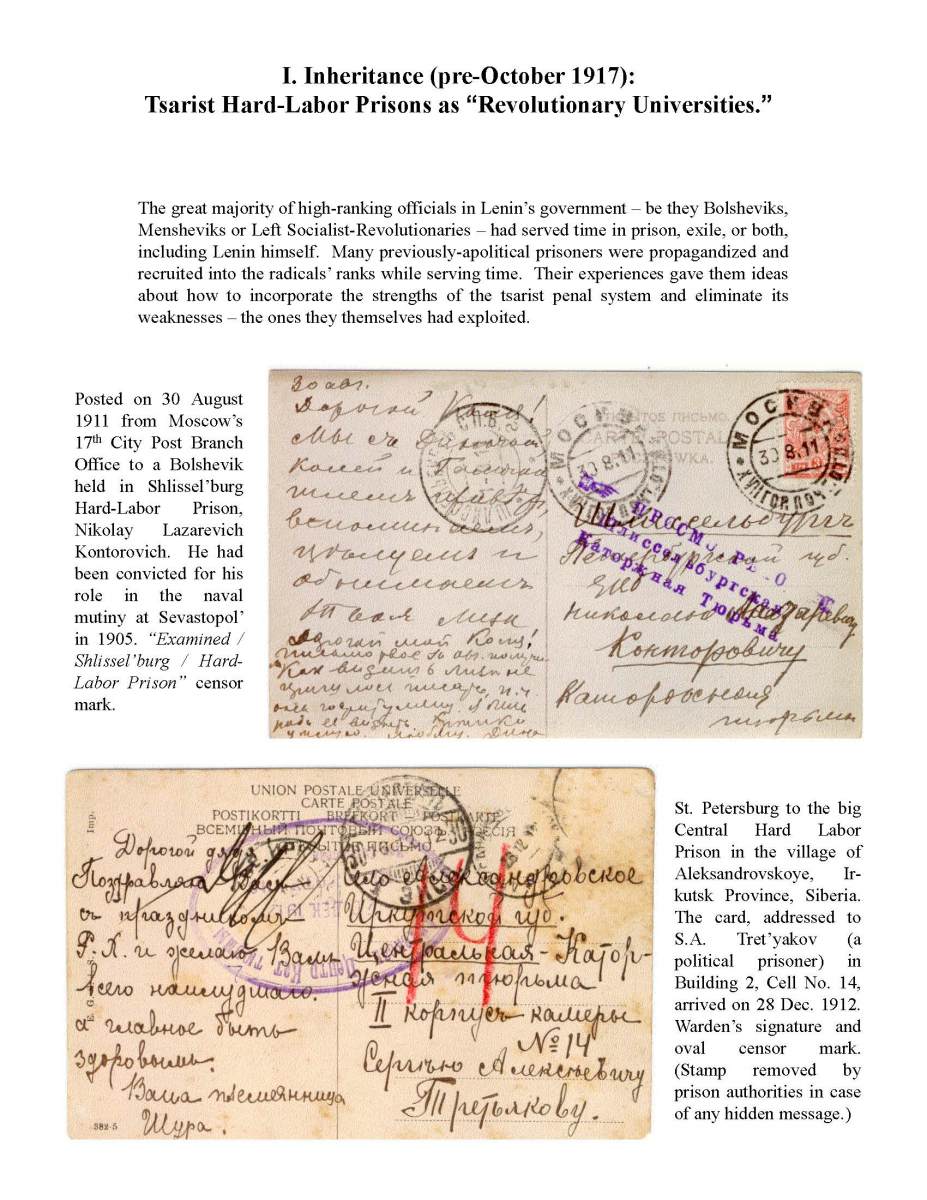 I. Inheritance (pre-October 1917):
Tsarist Hard-Labor Prisons as “Revolutionary Universities.”
The great majority of high-ranking officials in Lenin’s government – be they Bolsheviks,
Mensheviks or Left Socialist-Revolutionaries – had served time in prison, exile, or both,
including Lenin himself. Many previously-apolitical prisoners were propagandized and
recruited into the radicals’ ranks while serving time. Their experiences gave them ideas
about how to incorporate the strengths of the tsarist penal system and eliminate its
weaknesses – the ones they themselves had exploited.
Posted on 30 August
1911 from Moscow’s
17th City Post Branch
Office to a Bolshevik
held in Shlissel’burg
Hard-Labor Prison,
Nikolay Lazarevich
Kontorovich. He had
been convicted for his
role in the naval
mutiny at Sevastopol’
in 1905. “Examined /
Shlissel’burg / Hard-
Labor Prison” censor
mark.
30 авг.
Дорогой Коля!
вспоминаемъ,
цѣлуемъ и
обнимаемъ
Дорогой мой Коля!
CARTE POSTALE
МОСКВА
30.8.11
МОСКВА
30.8.11
Шлиссельбургъ
Петербургской губ.
Шлиссельбургская
Каторжная Тюрьма
Николаю Лазаревичу
Конторовичу
Каторжная
тюрьма
UNION POSTALE UNIVERSELLE
CARTE POSTALE
POSTIKORTTI BREFKORT
ВСЕМИРНЫЙ ПОЧТОВЫЙ СОЮЗЪ. РОССІЯ
Дорогой дядя
Поздравляю Васъ
съ праздникомъ
Р.Х. и желаю Вамъ
всего наилучшаго.
а главное быть
здоровымъ.
Ваша племянница
Шура.
382-5
Imp.
село Александровское
Иркутской губ.
Центральная-Катор-
жная тюрьма
II корпусъ камеры
№14
Сергѣю Алексѣевичу
Третьякову.
14
St. Petersburg to the big
Central Hard Labor
Prison in the village of
Aleksandrovskoye, Ir-
kutsk Province, Siberia.
The card, addressed to
S.A. Tret’yakov (a
political prisoner) in
Building 2, Cell No. 14,
arrived on 28 Dec. 1912.
Warden’s signature and
oval censor mark.
(Stamp removed by
prison authorities in case
of any hidden message.)